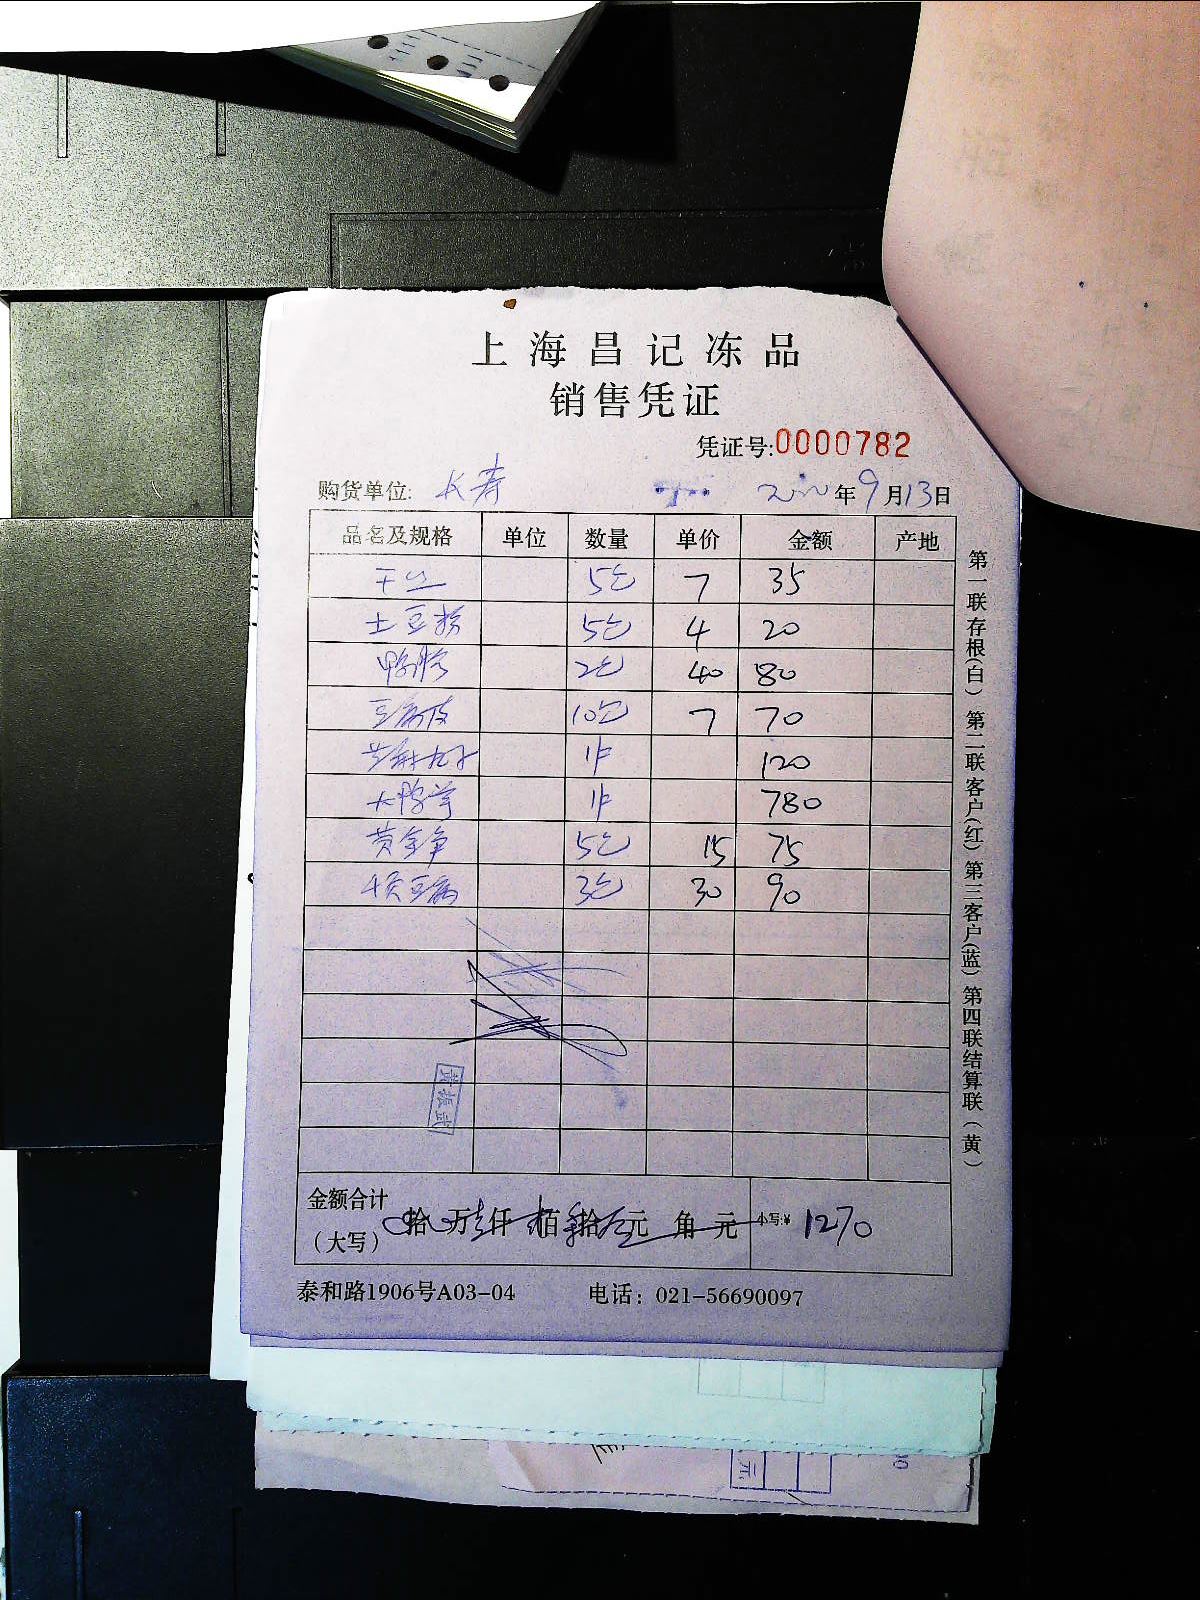 上海昌记冻品
销售凭证
凭证号:0000782
购货单位: 长寿 年9月13日
品名及规格 单位 数量 单价 金额 产地
5包 7 35
土豆粉 5包 4 20
鸭肠 2包 40 80
豆腐皮 10包 7 70
1件 120
1件 780
黄金 5包 15 75
豆腐 3包 30 90
黄振武
金额合计
(大写) 拾 万 仟 佰 拾 元 角 元 小写:¥ 1270
泰和路1906号A03-04 电话：021-56690097
第一联存根(白) 第二联客户(红) 第三客户(蓝) 第四联结算联(黄)
元